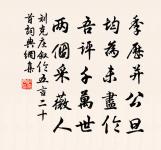 季歷并公旦
均為未盡倫
吾評千萬世
兩個采薇人
劉克庄叙倫五言二十
首詞典網集